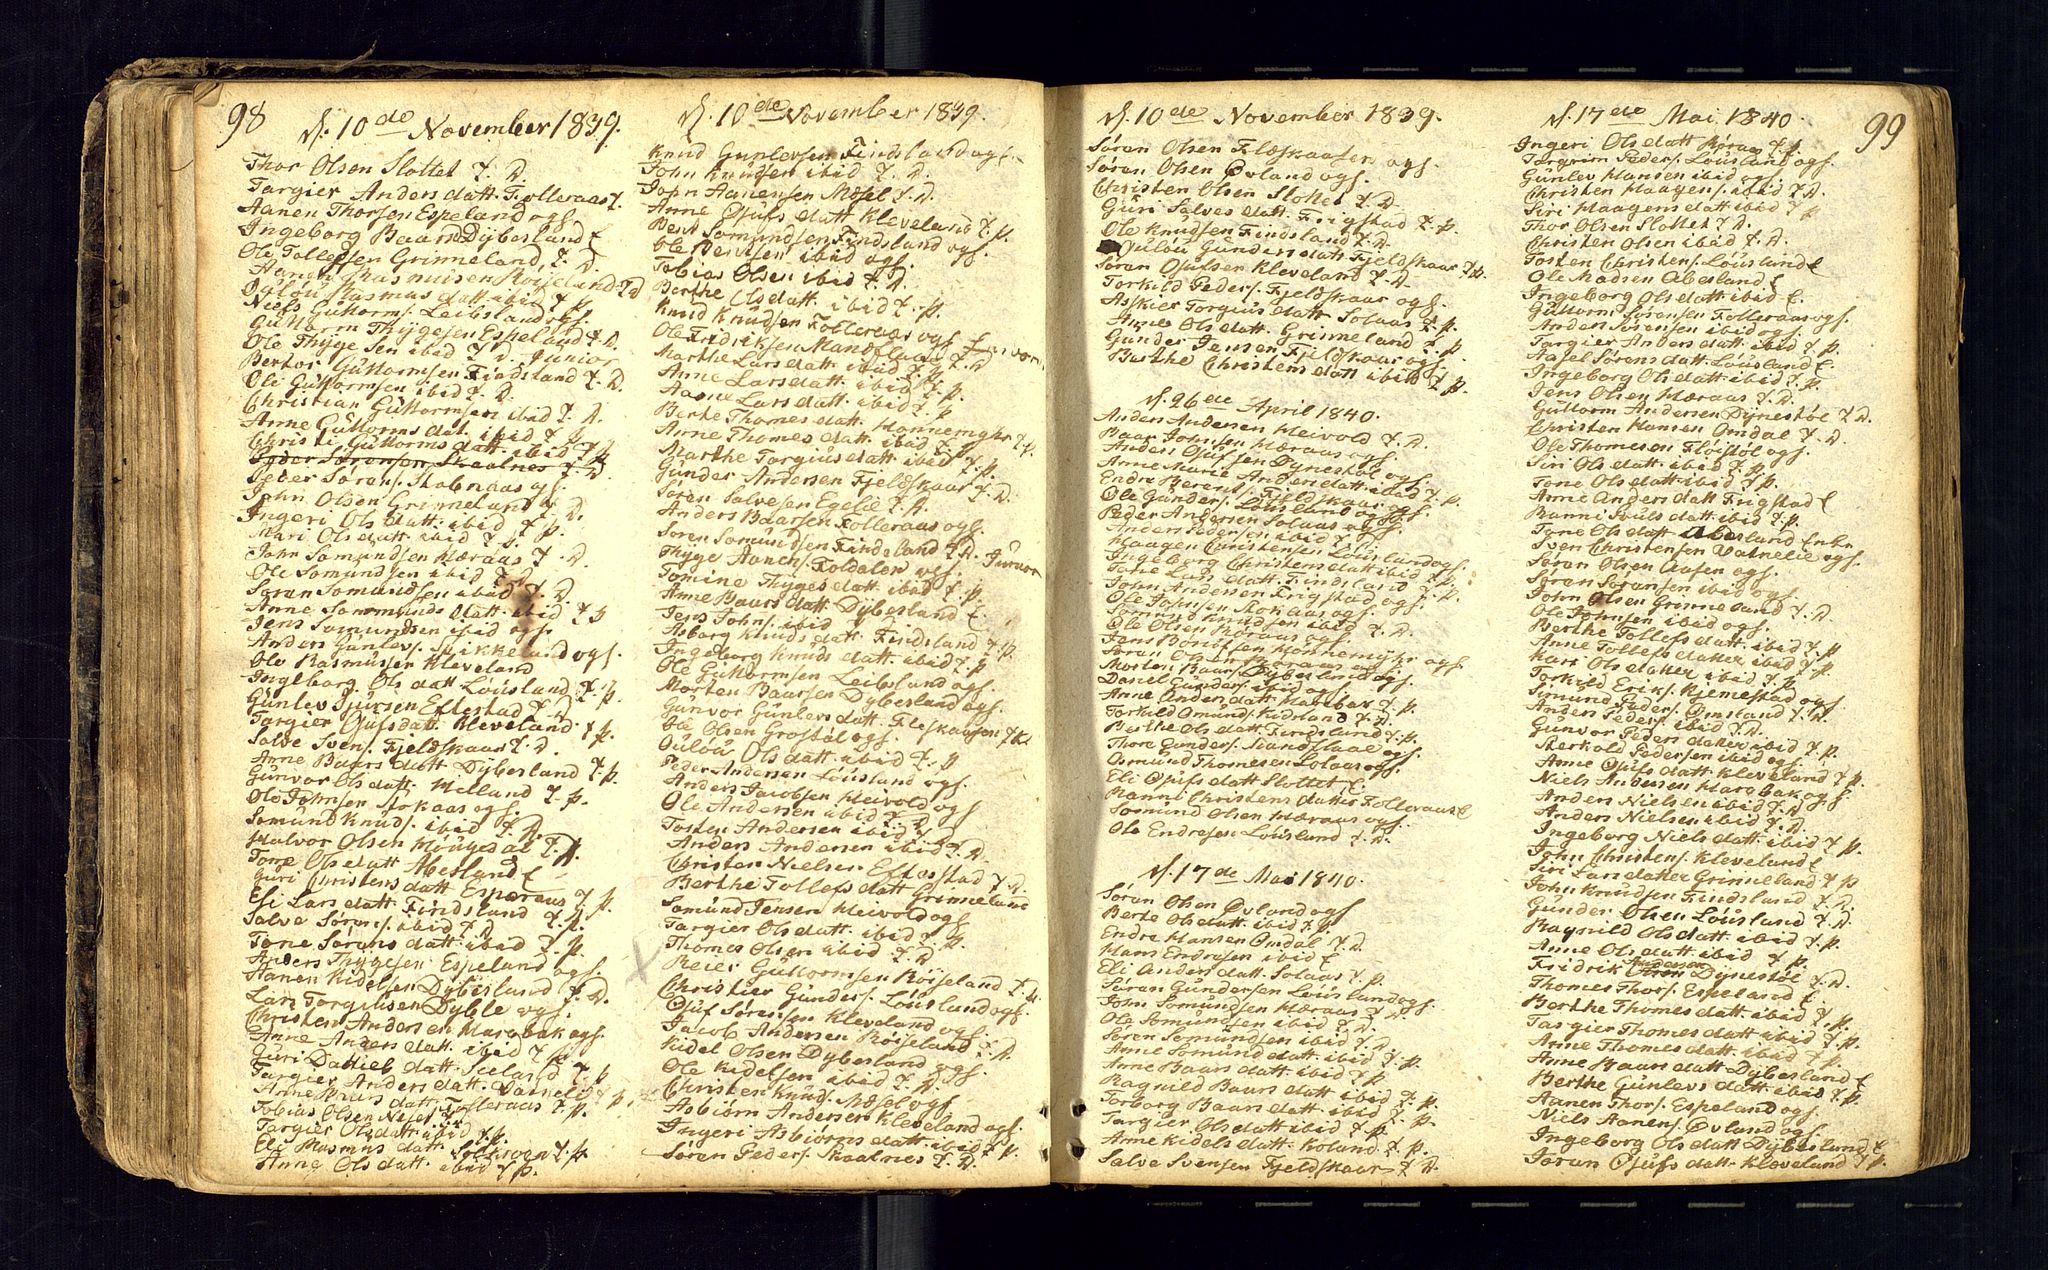 98
d. 10de November 1839.
Thor Olsen Slottet T. D.
Targier Andersdatt. Folleraas T.
Aanen Thorsen Espeland ogs.
Ingeborg Baarsd Dÿbesland E
Ole Tollefsen Grimmeland, T. D.
Hans Rasmusen Røiseland T D
Rasmus datt. ibid T. p.
Niels Guttorms. Leibsland ogs.
Guttorm Thÿgesen Espeland T. D.
Ole Thÿgesen ibid T. D. Junior
Guttormsen Findsland T. D.
Oli Guttormsen ibid T. D.
Christian Guttormsen ibid T. D.
Anne Guttorms dat. ibid T. p.
Christi Guttorms datt. ibid T p.
Peder Sørensen Skaalnes T. D.
Peter Sørens. ogs.
John Olsen Grimmeland T. D.
Ingeri Ols datt. ibid T. p.
Mari Ols datt. ibid T. p.
John Somundsen Hæraas T. D.
Ole Somundsen ibid T. D.
Søren Somundsen ibid T. D.
Anne Sommunds datt. ibid T
Jens Somundsen ibid ogs.
Anders Gunlevs. ogs.
Ole Rasmusen Kleveland
Ingeborg Ols datt Løusland T. p.
Gunlev Sjursen Eftestad T. D.
Targier Ojufsdatt. Kleveland T p.
Salve Svens. Fjeldskaar T. D.
Anne Baars datt Dÿbesland T. p.
Gunvor Ols datt. Helland T. p.
Ole Johnsen Stokaas ogs.
Somund Knuds. ibid T. D.
Halvor Olsen T. D.
Tone Olsdatt Abesland E
Guri Christens datt T. p.
Eli Lars datt. Findsland T. D.
Salve Sørens. ibid T. D.
Tone Sørens datt. ibid T. p.
Anders Thÿgesen Espeland ogs.
Aanen Kidelsen Dÿbesland T. D.
Lars Torgiusen Dÿble ogs.
Christen Andersen Harebak ogs.
Anne Anders datt. ibid T. p.
Guri datt. T. p.
Targier Anders datt. Vatneli T p.
Anne datt. Folleraas T. p.
Tobias Olsen
Targier Ols datt ibid T. p.
Eli Rasmus datt T. p.
Anne Ols datt. ibid T p.
d. 10de November 1839.
Knud Gunlevsen Findsland ogs.
John Knudsen ibid T. D.
John Aanensen Mæsel T. D.
Anne Ojufs datt Kleveland T. p.
Bent Somundsen Findsland ogs.
Ole Bentsen ibid ogs.
Tobias Olsen ibid T. D.
Berthe Olsdatt. ibid T. p.
Knud Knudsen Folleraas ogs
Ole Fridriksen Mandflaae T. D
Marthe Lars datt. ibid T. p.
Anne Lars datt. ibid T. p.
Aasne Lars datt. ibid T. p
Berte Thomes datt. Honnemÿhr T p.
Anne Thomes datt. ibid T. p.
Marthe Targius datt. ibid T. p.
Gunder Andersen Fjeldskaar T. D.
Søren Salvesen Egelie T. D.
Anders Baarsen Folleraas ogs.
Søren Somundsen Findsland T. D. Junior
Thÿge Aanens. Foldalen ogs.
Tomine Thÿges datt. ibid T. p.
Anne Baars datt Dÿbesland E
Jens Johns. ibid T. p.
Asborg Knuds datt. Findsland T. p.
Ingeborg Knuds datt. ibid T. p
Ole Guttormsen Leibsland ogs.
Morten Baarsen Dÿbesland ogs.
Gunvor Gunlevs datt. T p.
Ole Olsen ogs.
Oulou Ols datt. ibid T.
Peder Andersen Løusland ogs.
Anders Jacobsen Heivold ogs
Ole Andersen ibid T. D
Tosten Andersen ibid T
Anders Andersen ibid T. D.
Christen Nielsen Eftestad T. D.
Berthe Tollefs datt Grimmeland
Somund Jensen Heivold ogs
Targier Ols datt. ibid T. p.
Thomes Olsen ibid T. D
Reier Guttormsen Røiseland T. D.
Christier Gunders. Løusland ogs.
Ojuf Sørensen Kleveland ogs.
Jacob Andersen Røiseland T. D.
Kidel Olsen Dÿbesland ogs.
Ole Kidelsen ibid T. D.
Christen Knuds. Mæsel ogs
Asbiørn Andersen Kleveland ogs.
Ingeri Asbiørns datt. ibid T. p.
Søren Peders. Skaalnes T. D.
99
d. 10de November 1839.
Søren Olsen ogs.
Søren Olsen Øvland ogs.
Christen Olsen Slottet T. D.
Guri Salves datt. Frigstad T. p.
Ole Knudsen Findsland T. D.
Oulou Gunders datt. Fjeldskaar T p.
Søren Ojufsen Kleveland T. D.
Torkild Peders. Fjeldskaar ogs.
Askier Torgius datt. Solaas T. p.
Anne Ols datt. Grimeland T. p.
Gunder Jensen Fjeldskaar ogs.
Berthe Christens datt ibid T p.
d. 26de April 1840.
Anders Andersen Heivold T. D.
Baar Johnsen Hæraas ogs.
Anders Ojufsen Dÿnestøl ogs.
Anne Marie Anders datt ibid T. p.
Endre Berents. Fjeldskaar ogs.
Ole Gunders. Løusland ogs.
Peder Andersen Solaas ogs.
Anders Pedersen ibid T.
Haagen Christensen Løusland ogs.
Ingeborg Christens datt ibid T p.
Tone Lars datt. Findsland T. p.
John Andersen Frigstad ogs.
Ole Johnsen Stokaas ogs.
Somund Knudsen ibid T. D.
Ole Olsen Røraas ogs.
Jens Bentsen Honnemÿhr ogs.
Søren Olsen Hæraas ogs
Morten Baars. Dÿbesland ogs.
Daniel Gunders. ibid ogs
Anne Anders datt Harebak T p.
Torkild Omunds. T. D.
Berthe Ols datt. Findsland T. p.
Thore Gunders. Mandflaae ogs.
Osmund Thomesen Solaas ogs.
Eli Ojufs datt Slottet E.
Ranni Christens datter Folleraas E
Somund Olsen Hæraas ogs.
Ole Endresen Løusland T. D.
d. 17de Mai 1840.
Søren Olsen Øvland ogs
Berte Olsdatt. ibid T. p.
Endre Hansen Omdal T. D.
Hans Endresen ibid E
Eli Anders datt. Solaas T p.
Søren Gundersen Løusland ogs.
John Somundsen Hæraas T. D.
Ole Somundsen ibid T. D.
Søren Somundsen ibid T. D.
Anne Somunds datt. ibid T. p.
Anne Baars datt ibid T. p.
Ragnild Baars datt ibid T. p.
Torborg Baars datt. ibid T. p.
Targier Ols datt. ibid T p.
Anne Kidels datt. Koland T. p.
Salve Svensen Fjeldskaar T D.
d. 17de Mai 1840.
Ingeri Ols datt Røraas T. p.
Torgrim Peders. Løusland ogs.
Gunlev Hansen ibid ogs.
Christen Haagens. ibid T. D.
Siri Haagens datt ibid T p
Thor Olsen Slottet T. D.
Christen Olsen ibid T. D.
Tosten Christens. Løusland E
Ole Madsen Abesland E
Ingeborg Ols datt ibid E.
Guttorm Sørensen Folleraas ogs.
Anders Sørensen ibid ogs.
Targier Anders datt ibid T. p.
Aasel Sørens datt. Løusland E.
Ingeborg Ols datt ibid T. p.
Jens Olsen Hæraas T. D.
Guttorm Andersen Dÿnestøl T D.
Christen Hansen Omdal T. D.
Ole Thomesen Fløistøl ogs.
Siri Ols datt. ibid T. p.
Tone Ols datt ibid T p.
Anne Anders datt Frigstad E
Ranni Pouls datt ibid T. p.
Tone Ols datt Abesland Enke
Sven Christensen Vatnelie ogs.
Søren Olsen Aasen ogs.
Søren Sørensen ibid ogs.
John Olsen Grimmeland T. D.
Ole Johnsen ibid ogs.
Berthe Tollefs datt. ibid T. p.
Anne Tollefs datter ibid T p
Kari Ols datter ibid T. p.
Torkild Eriks. Hjemestad ogs
Simund Peders. Omland T. D.
Anders Peders. ibid T. D.
Gunvor Peders datter ibid T. p.
Terkold Pedersen ibid ogs.
Anne Ojufs datt. Kleveland T p.
Niels Andersen Harebak ogs.
Anders Nielsen ibid T. D
Ingeborg Niels datt. ibid T. p.
John Christens. Kleveland E
Siri Lars datter Grimmeland T p
John Knudsen Findsland T. D.
Gunder Olsen Løusland T. D.
Ragnild Ols datt. ibid T. p.
Anne Ols datt. ibid T. p.
Andersen
Fridrik Olsen Dÿnestøl T. D.
Thomes Thors. Espeland E
Berthe Thomes datt. ibid T. p.
Targier Thomes datt ibid T. p.
Anne Thomes datt. ibid T. p.
Anne Baars datt Dÿbesland E
Berthe Gunlevs datt. ibid T. p.
Aanen Thors. Espeland ogs.
Niels Aanens. Øvland ogs.
Ingeborg Ols datt Dÿbesland E
Søran Ojufs datt. Kleveland T p.